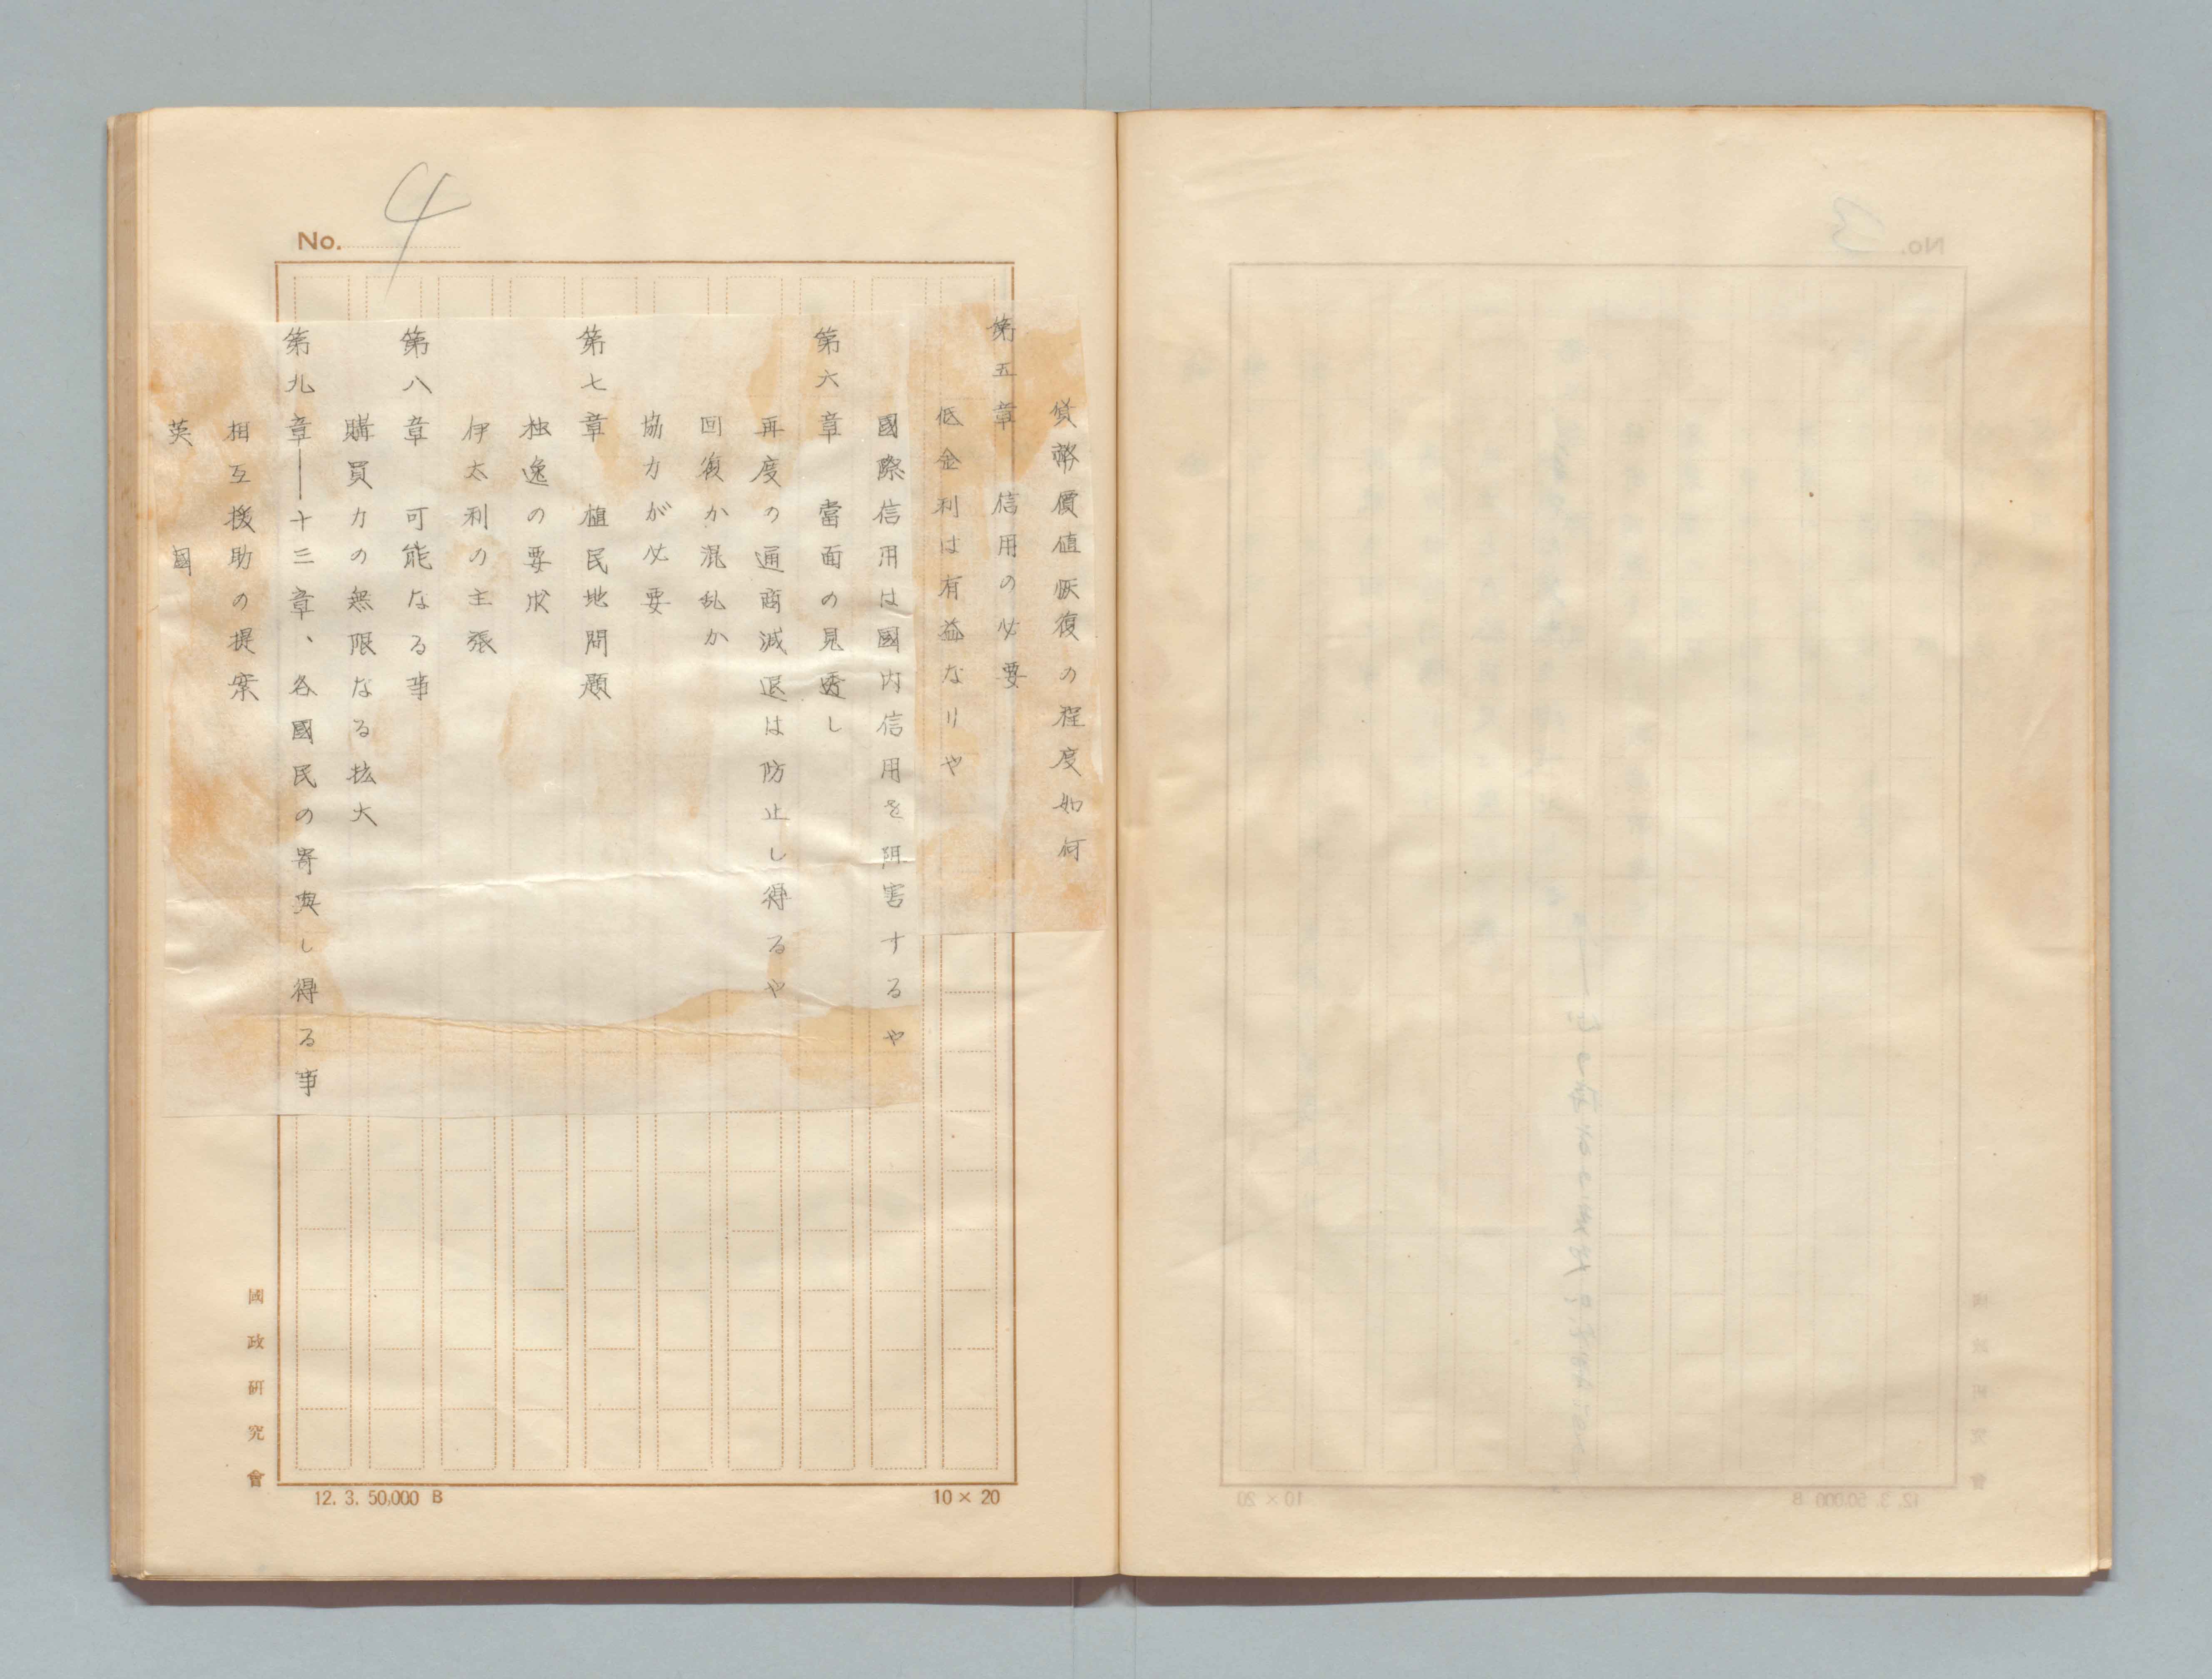 No. 4
貨幣價値恢復の程度如何
第五章　信用の必要
低金利は有益なりや
國際信用は國内信用を阻害するや
第六章　當面の見透し
再度の通商減退は防止し得るや
回復か混乱か
協力が必要
第七章　植民地問題
独逸の要求
伊太利の主張
第八章　可能なる事
購買力の無限なる拡大
第九章――十三章、各國民の寄與し得る事
相互援助の提案
英　國
國政研究會
12. 3. 50,000 B
10 × 20